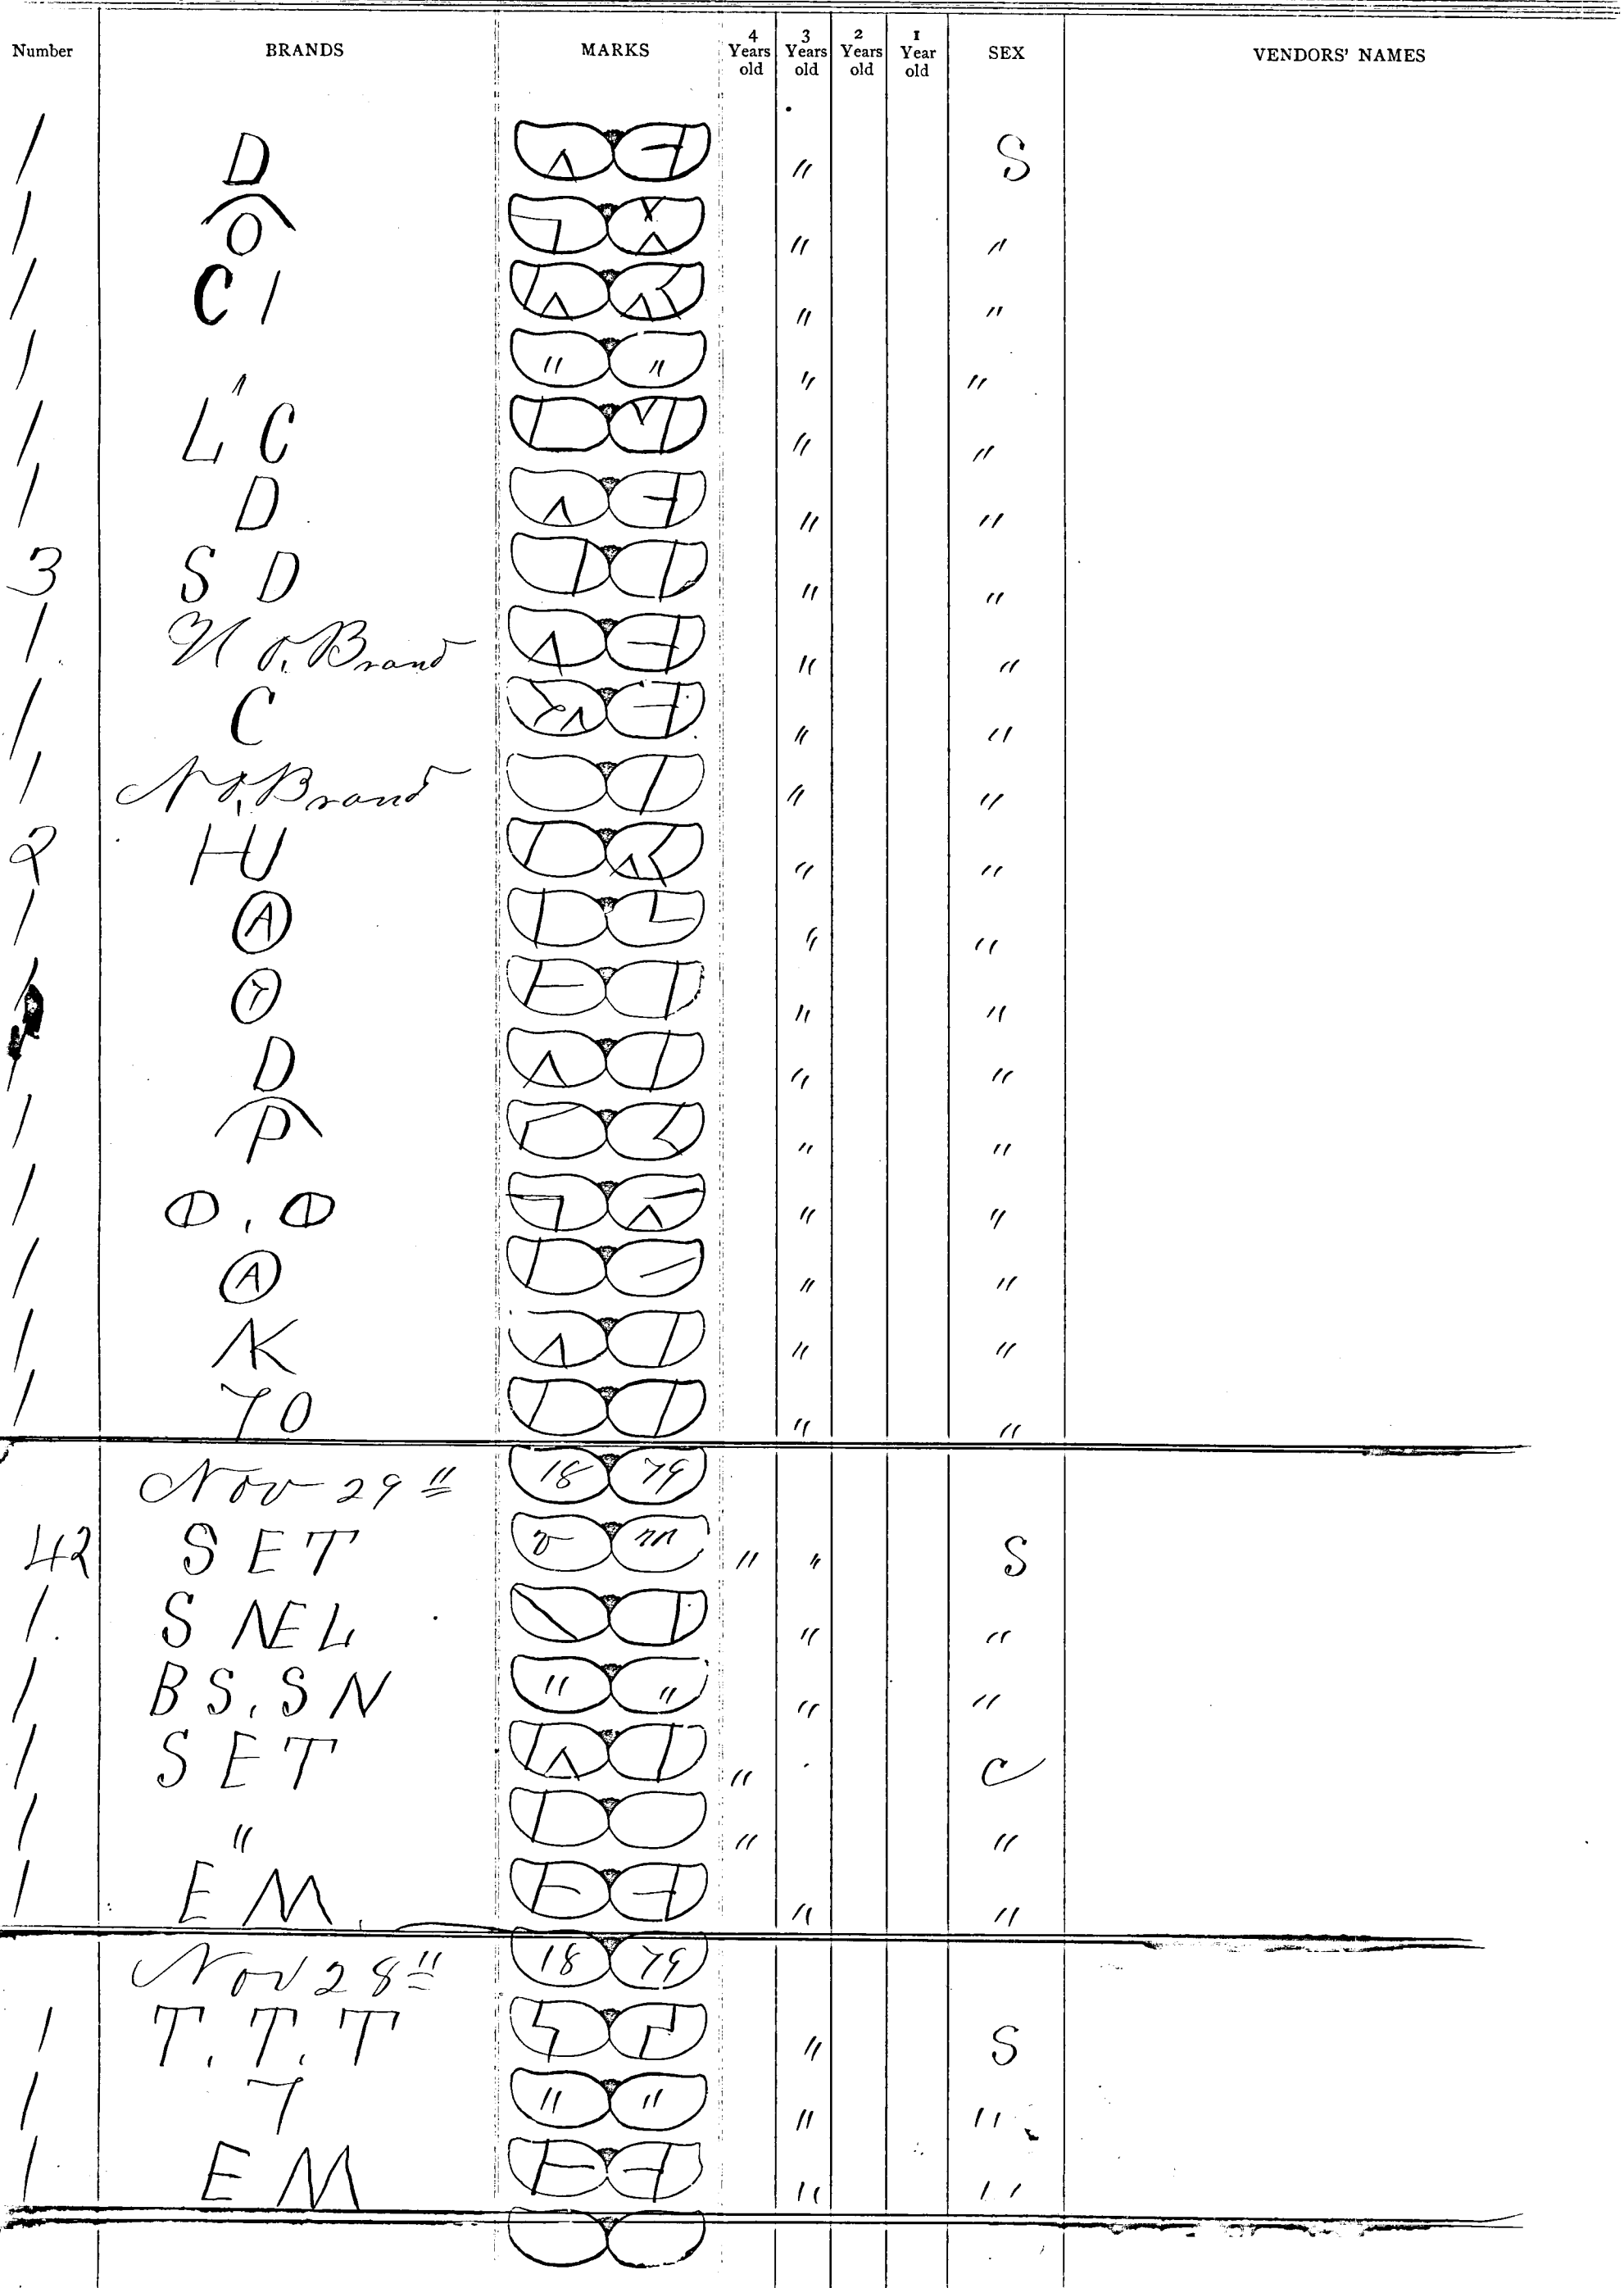 Number BRANDS MARKS 4 Years old 3 Years old 2 Years old 1 Year old SEX VENDORS' NAMES
1 D " S
1 O " "
1 C I " "
1 " " " " "
1 L C " "
1 D " "
3 S D " "
1 No. Brand " "
1 C " "
1 No. Brand " "
2 HU " "
1 A " "
1 " "
1 D " "
1 P " "
1 " "
1 A " "
1 " "
1 70 " "
Nov 29" 18 79
42 S E T " " S
1 S NEL " "
1 B S. S N " " " "
1 S E T " C
1 " " "
1 E M. " "
Nov 28" 18 79
1 T. T. T " S
1 7 " " " "
1 E M " "